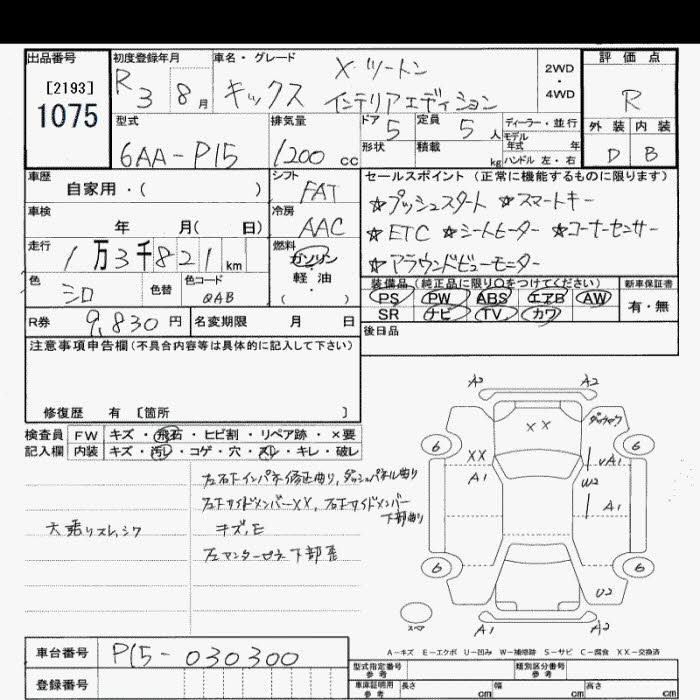 出品番号
[2193]
1075
初度登録年月
R 3 8月
車名・グレード
キックス
X ツートン
インテリアエディション
2WD
・
4WD
評価点
R
外装 内装
D B
型式
6AA-P15
排気量
1200 cc
ドア 5
定員 5 人
形状
積載 kg
ディーラー・並行
モデル年式 年
ハンドル 左・右
車歴
自家用・( )
シフト
FAT
車検
年 月( 日)
冷房
AAC
走行
1万3千821km
燃料
ガソリン
・
軽油
( )
色
シロ
色替
色コード
QAB
R券 9,830円
名変期限 月 日
セールスポイント(正常に機能するものに限ります)
☆プッシュスタート ☆スマートキー
☆ETC ☆シートヒーター ☆コーナーセンサー
☆アラウンドビューモニター
装備品(純正品に限り○をつけてください)
PS PW ABS エアB AW
SR ナビ TV カワ
新車保証書
有・無
後日品
注意事項申告欄(不具合内容等は具体的に記入して下さい)
修復歴 有 [箇所 ]
検査員 FW キズ・飛石・ヒビ割・リペア跡・×要
記入欄 内装 キズ・汚レ・コゲ・穴・スレ・キレ・破レ
左右下インパネ修正曲り,ダッシュパネル曲り
左下サイドメンバーXX, 右下サイドメンバー
下部曲り
キズ,E
大乗りスレ,シワ
左センターピラー下部歪
A2 A2
XX
6 6
XX
A1
A1
U2
A1
6 6
U2
A1 A2
スペア
A-キズ E-エクボ U-凹み W-補修跡 S-サビ C-腐食 XX-交換済
車台番号 P15-030300
登録番号
型式指定番号
参考
類別区分番号
参考
車庫証明用
参考
長さ cm
幅 cm
高さ cm